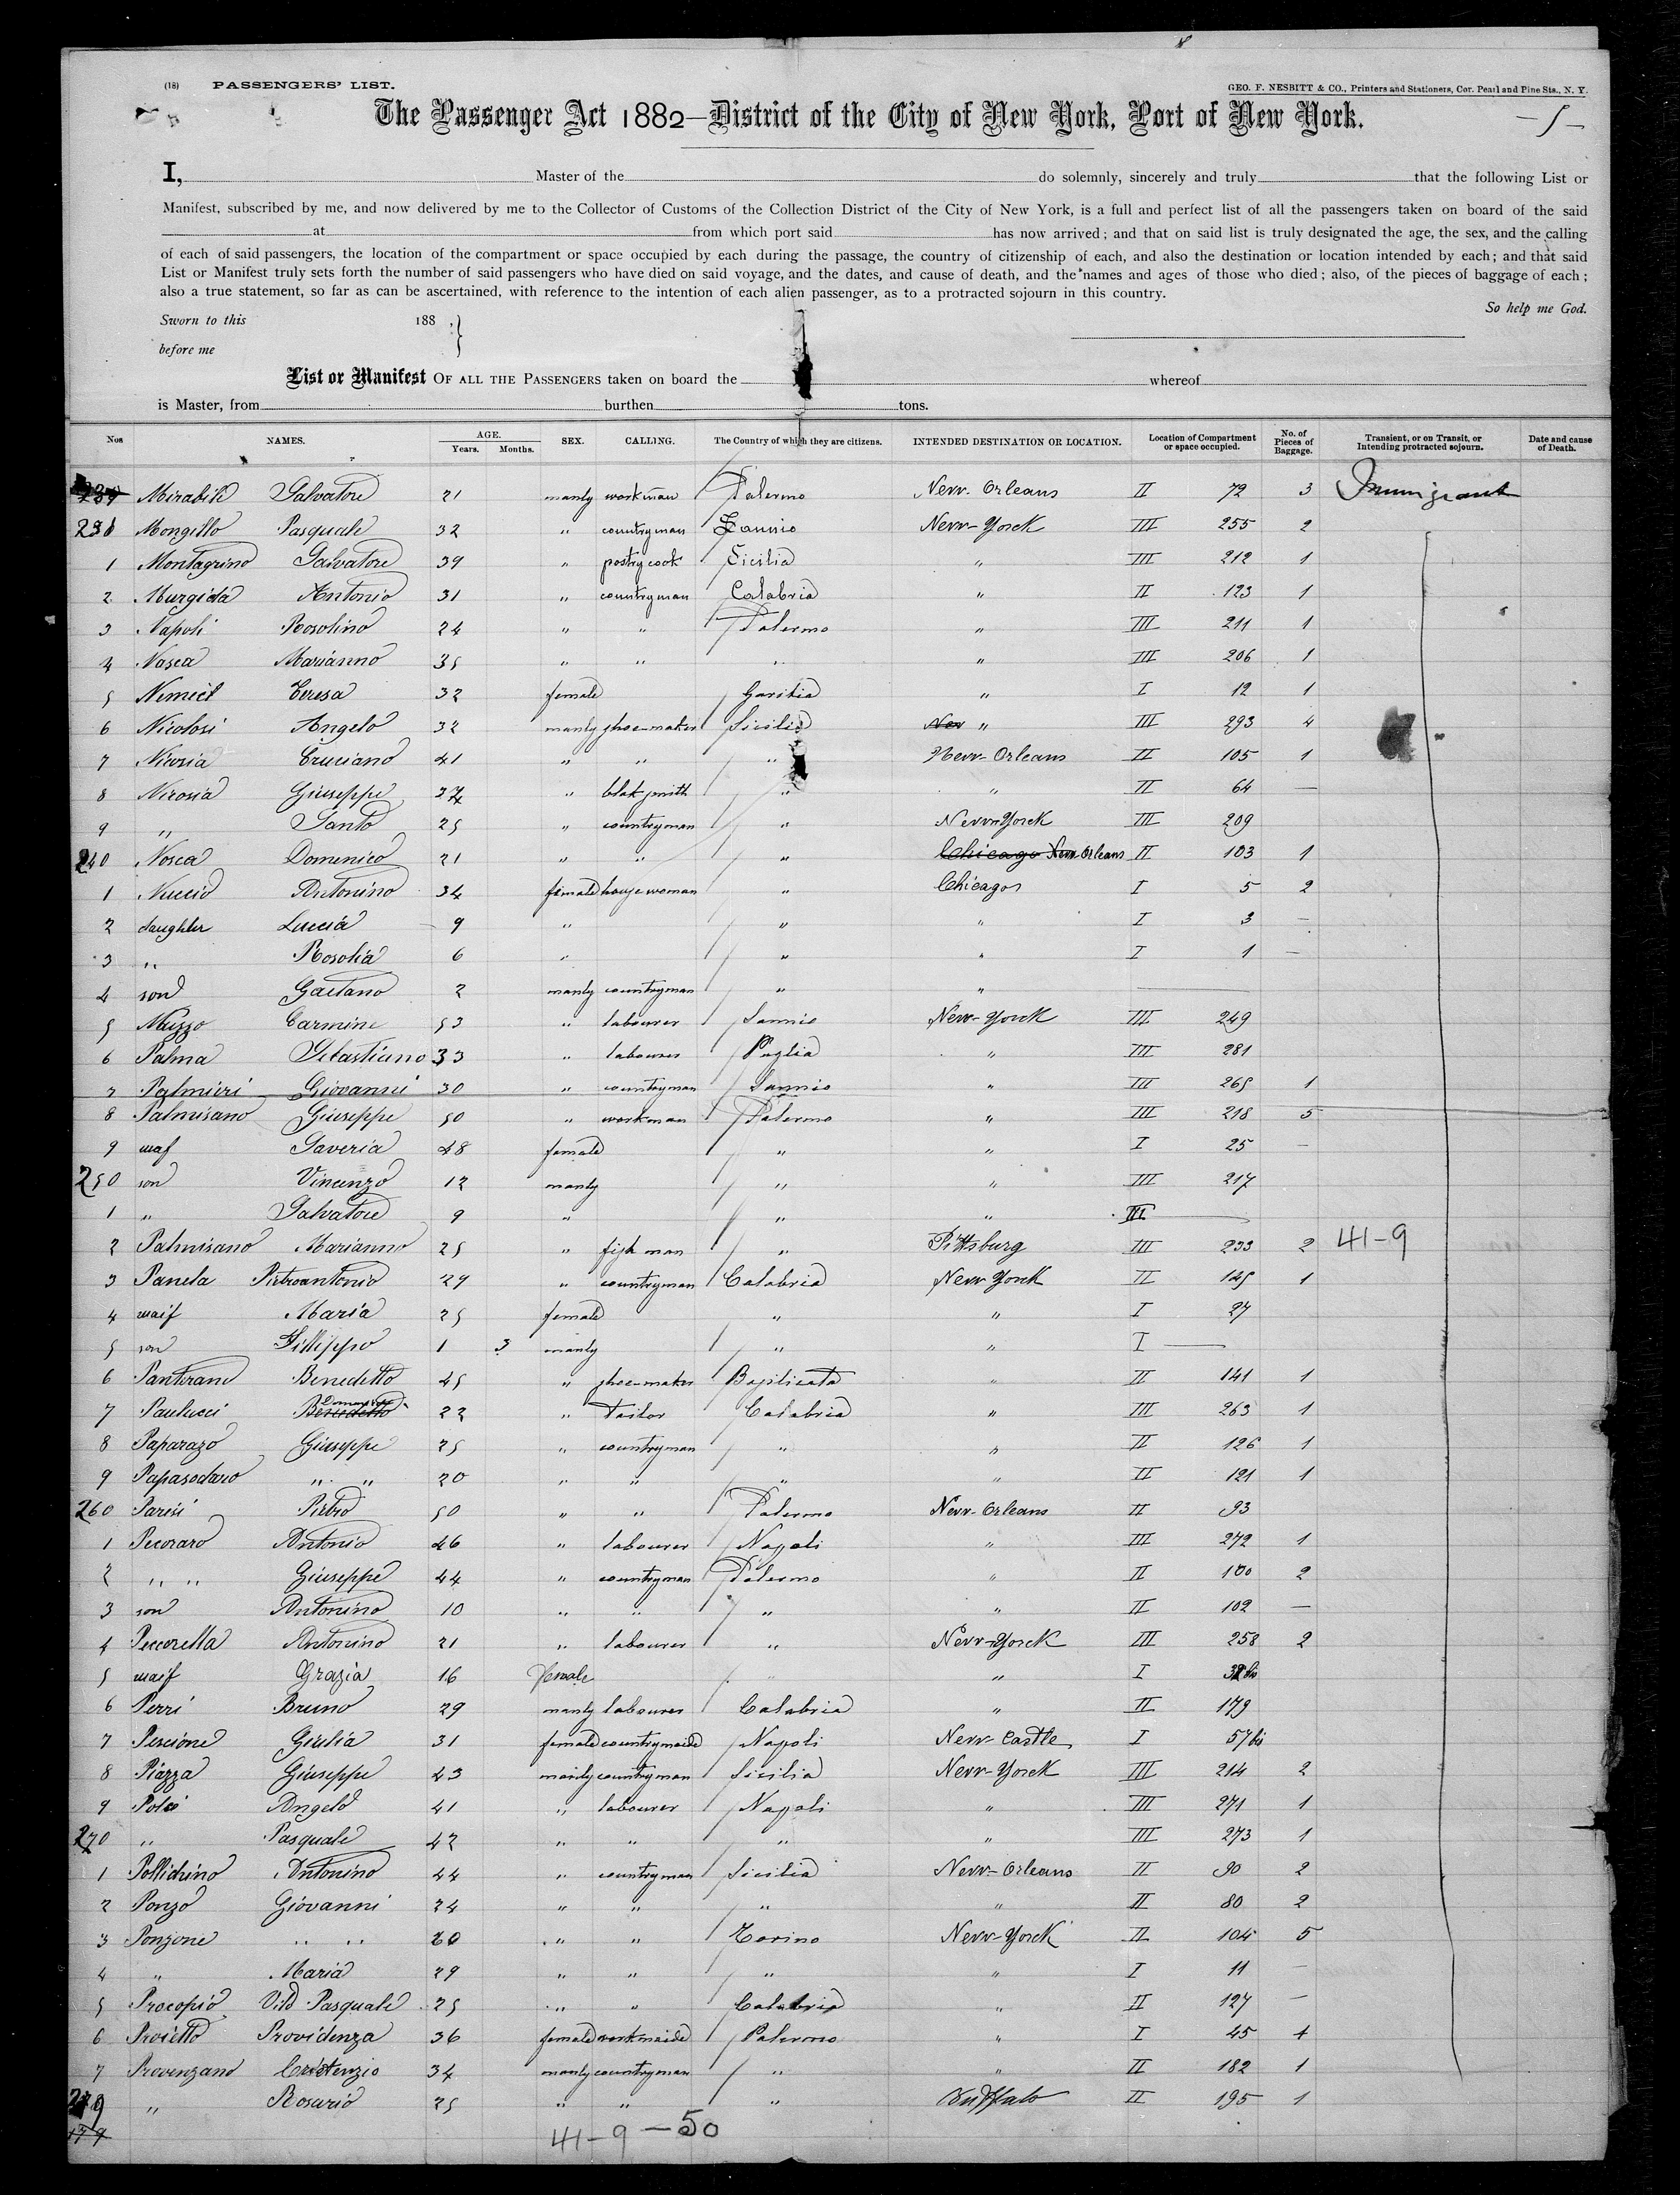 (18) PASSENGERS' LIST.
GEO. F. NESBITT & CO., Printers and Stationers, Cor. Pearl and Pine Sts., N. Y.
The Passenger Act 1882—District of the City of New York, Port of New York.
I, Master of the do solemnly, sincerely and truly that the following List or
Manifest, subscribed by me, and now delivered by me to the Collector of Customs of the Collection District of the City of New York, is a full and perfect list of all the passengers taken on board of the said
at from which port said has now arrived; and that on said list is truly designated the age, the sex, and the calling
of each of said passengers, the location of the compartment or space occupied by each during the passage, the country of citizenship of each, and also the destination or location intended by each; and that said
List or Manifest truly sets forth the number of said passengers who have died on said voyage, and the dates, and cause of death, and the names and ages of those who died; also, of the pieces of baggage of each;
also a true statement, so far as can be ascertained, with reference to the intention of each alien passenger, as to a protracted sojourn in this country.
So help me God.
Sworn to this 188 ,
before me
List or Manifest OF ALL THE PASSENGERS taken on board the whereof
is Master, from burthen tons.
Nos NAMES. AGE. Years. Months. SEX. CALLING. The Country of which they are citizens. INTENDED DESTINATION OR LOCATION. Location of Compartment or space occupied. No. of Pieces of Baggage. Transient, or on Transit, or Intending protracted sojourn. Date and cause of Death.
Mirabile Salvatore 21 manly workman Palermo New-Orleans II 72 3 Immigrant
Mongillo Pasquale 32 " countryman Sannio New-Yorck III 255 2
1 Montagnino Salvatore 39 " pastry cook Sicilia " III 212 1
2 Murgida Antonio 31 " countryman Calabria " II 123 1
3 Napoli Rosolino 24 " " Palermo " III 211 1
4 Nasca Marianno 35 " " " " III 206 1
5 Teresa 32 female " I 12 1
6 Nicolosi Angelo 32 manly shoe-maker Sicilia New " III 293 4
7 Nicosia Cruciano 41 " " " New-Orleans II 105 1
8 Nicosia Giuseppe " blaksmith " " II 64 —
9 " Santo 25 " countryman " New-Yorck III 209
240 Nosca Domenico 21 " " " Chicago New Orleans II 103 1
1 Nuccio Antonino 34 female housewoman " Chicago I 5 2
2 daughter Luccia 9 " " " I 3 —
3 " Rosolia 6 " " " I 1 —
4 son Gaetano 2 manly countryman " "
5 Muzzo Carmine 53 " labourer Sannio New-Yorck III 249
6 Palma Sebastiano 33 " labourer Puglia " III 281
7 Palmieri Giovanni 30 " countryman Sannio " III 265 1
8 Palmisano Giuseppe 50 " workman Palermo " III 218 5
9 waf Saveria 48 female " " I 25 —
250 son Vincenzo 12 manly " " III 217
1 " Salvatore 9 " " " III
2 Palmisano Marianno 25 " fishman " Pittsburg III 233 2 41-9
3 Panela Pietroantonio 29 " countryman Calabria New-Yorck II 125 1
4 waif Maria 25 female " " I 27
5 son Fillippo 1 3 manly " " I
6 Panterano Benedetto 45 " shoe-maker Basilicata " II 141 1
7 Paulucci Benedetto 22 " Tailor Calabria " III 263 1
8 Paparazo Giuseppe 25 " countryman " " II 126 1
9 Papasodaro " " 20 " " " " II 121 1
260 Parisi Pietro 50 " " Palermo New-Orleans II 93
1 Pecoraro Antonio 46 " labourer Napoli " III 272 1
2 " " Giuseppe 44 " countryman Palermo " II 100 2
3 son Antonino 10 " " " " II 102 —
4 Peccorella Antonino 21 " labourer " New-Yorck III 258 2
5 waif Grazia 16 female " " I
6 Perri Bruno 29 manly labourer Calabria " II 179
7 Pescione Giulia 31 female countrymaide Napoli New-Castle I 57 bis
8 Piazza Giuseppe 43 manly countryman Sicilia New-Yorck III 214 2
9 Angelo 41 " labourer Napoli " III 271 1
270 " Pasquale 42 " " " " III 273 1
1 Pollichino Antonino 44 " countryman Sicilia New-Orleans II 90 2
2 Ponzo Giovanni 24 " " " " II 80 2
3 Ponzone " " " " Torino New-Yorck II 104 5
4 " Maria 29 " " " " I 11 —
5 Procopio Vito Pasquale 25 " " Calabria " II 127 —
6 Proietto Providenza 36 female workmaide Palermo " I 45 1
7 Provenzano 34 manly countryman " " II 182 1
" Rosario 25 " " " Buffalo II 195 1
41-9-50